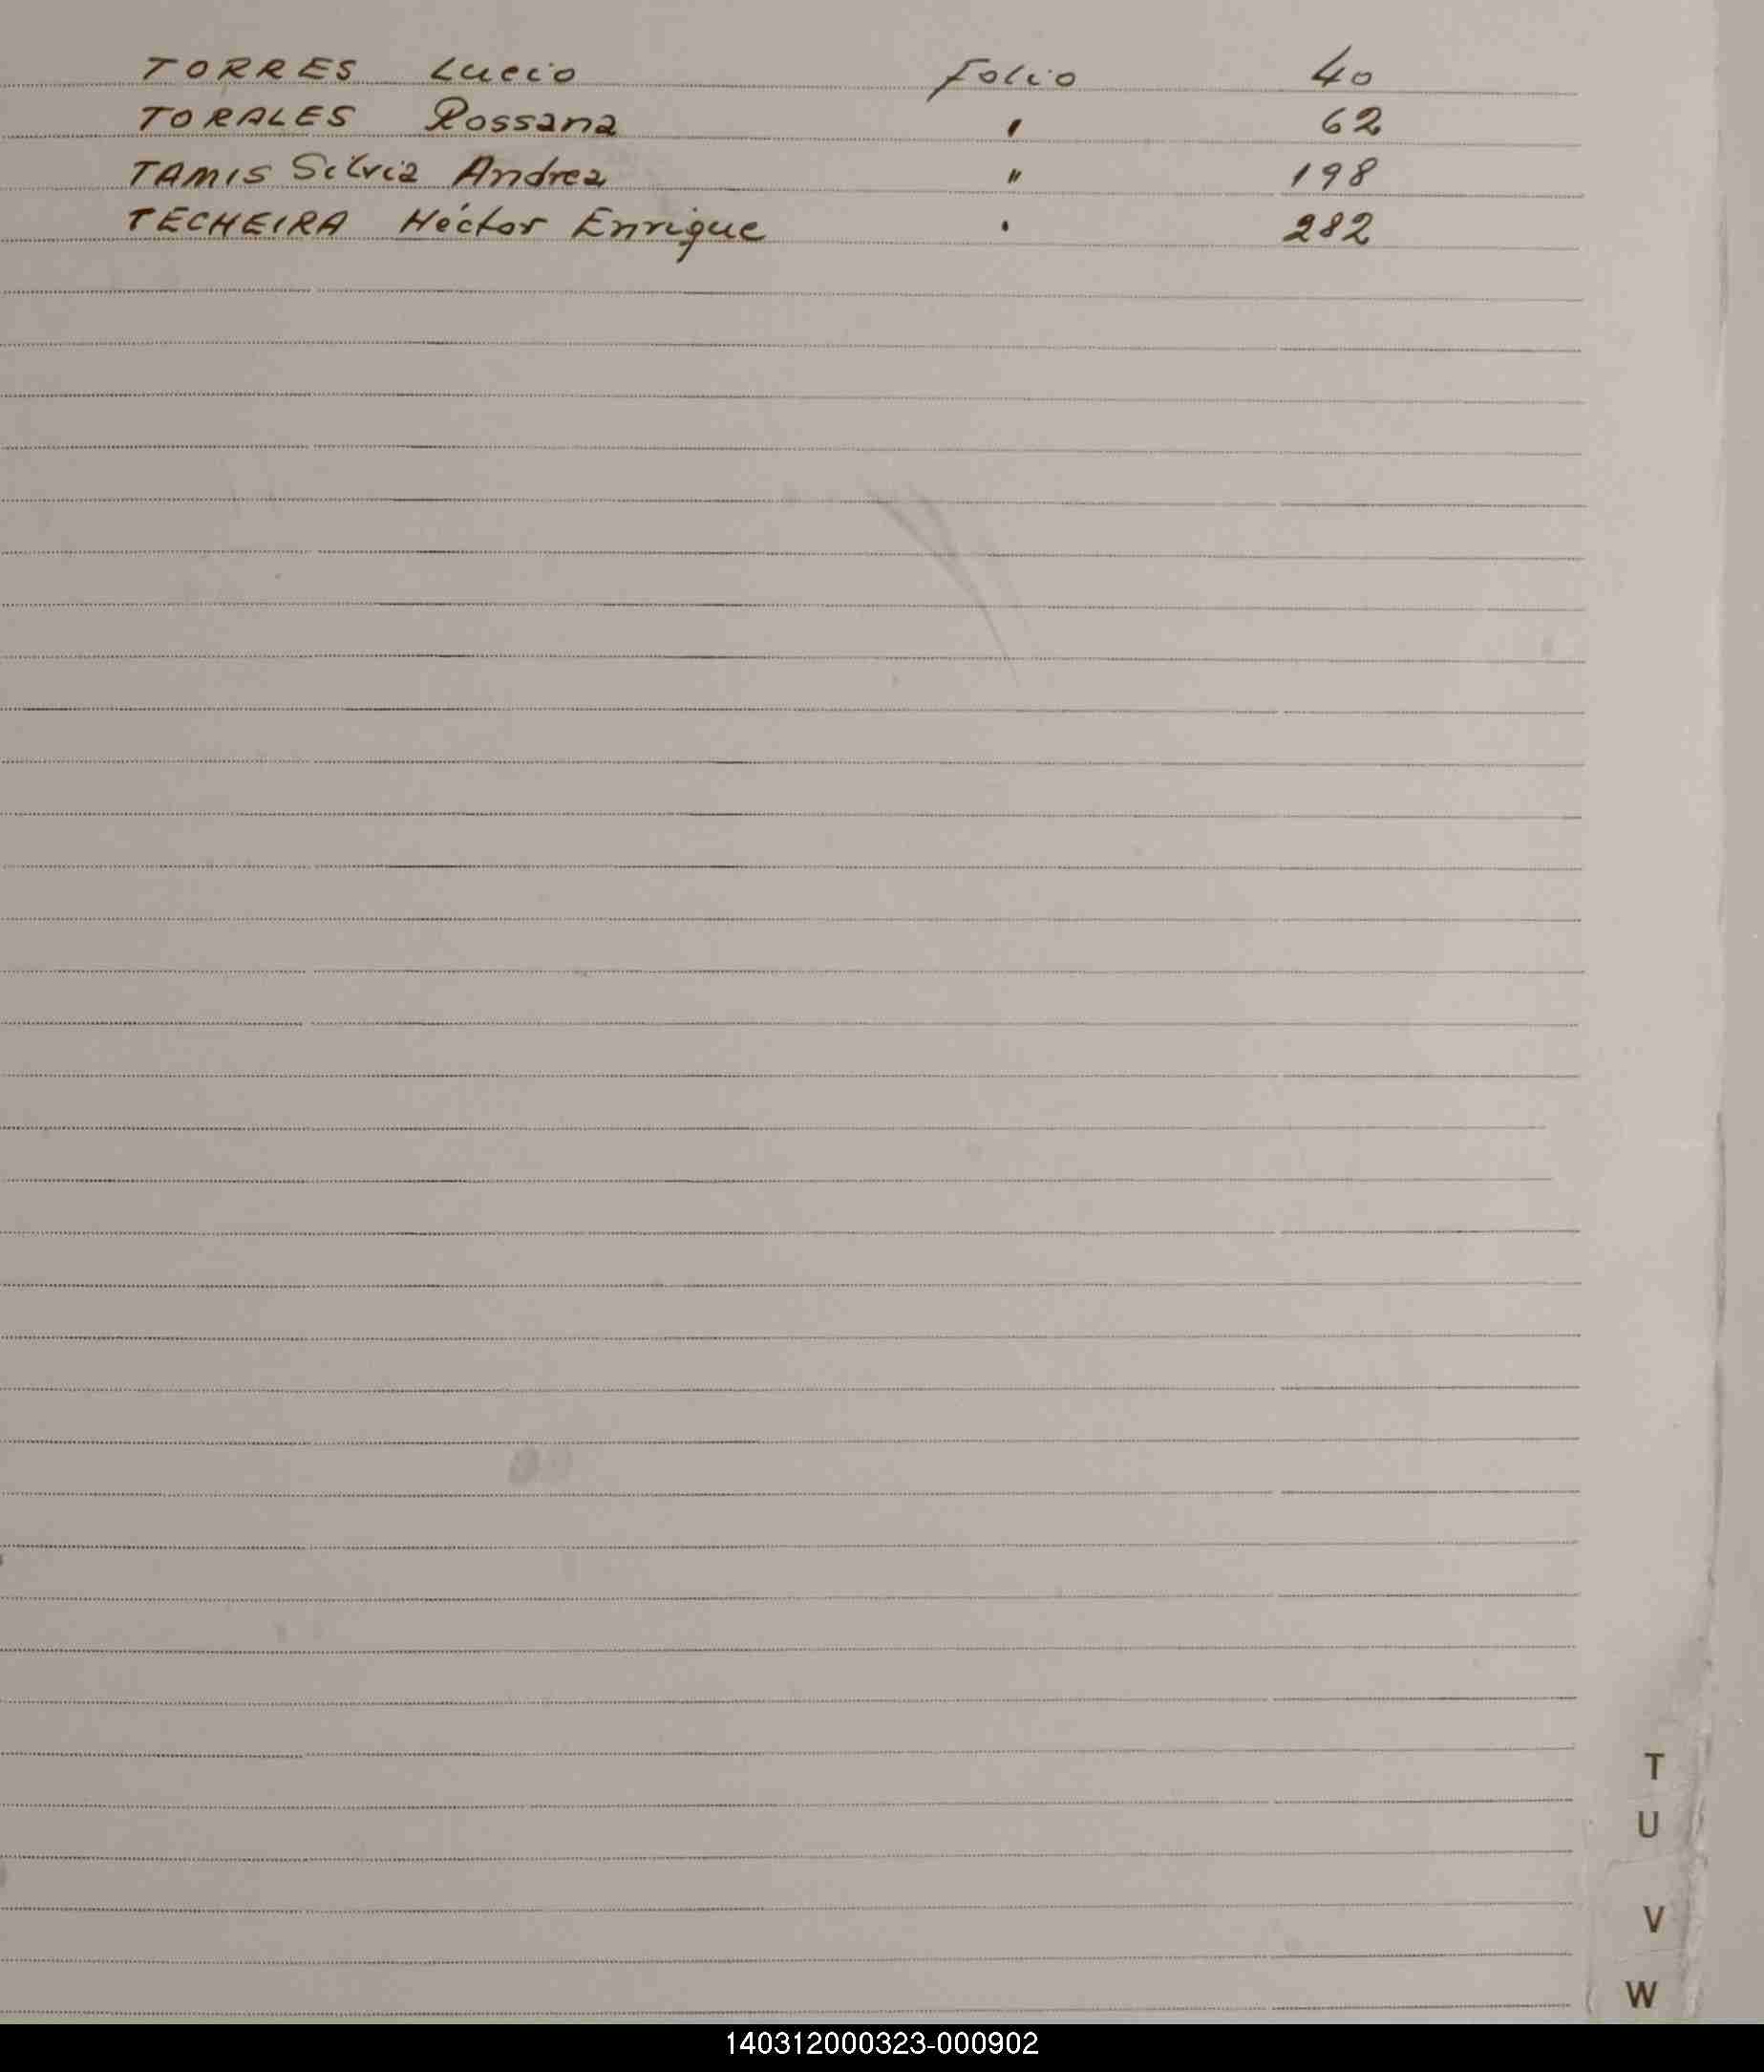 TORRES Lucio Folio 40
TORALES Rossana " 62
TAMIS Silvia Andrea " 198
TECHEIRA Héctor Enrique " 282
T
U
V
W
140312000323-000902